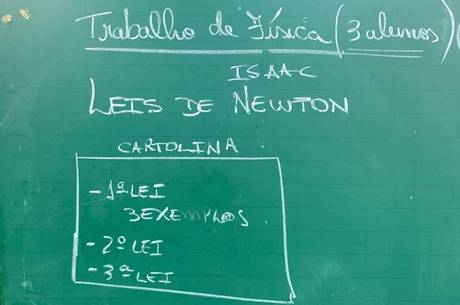 Trabalho de Física (3 alunos)
ISAAC
LEIS DE NEWTON
CARTOLINA
- 1ª LEI
3 EXEMPLOS
- 2º LEI
- 3ª LEI